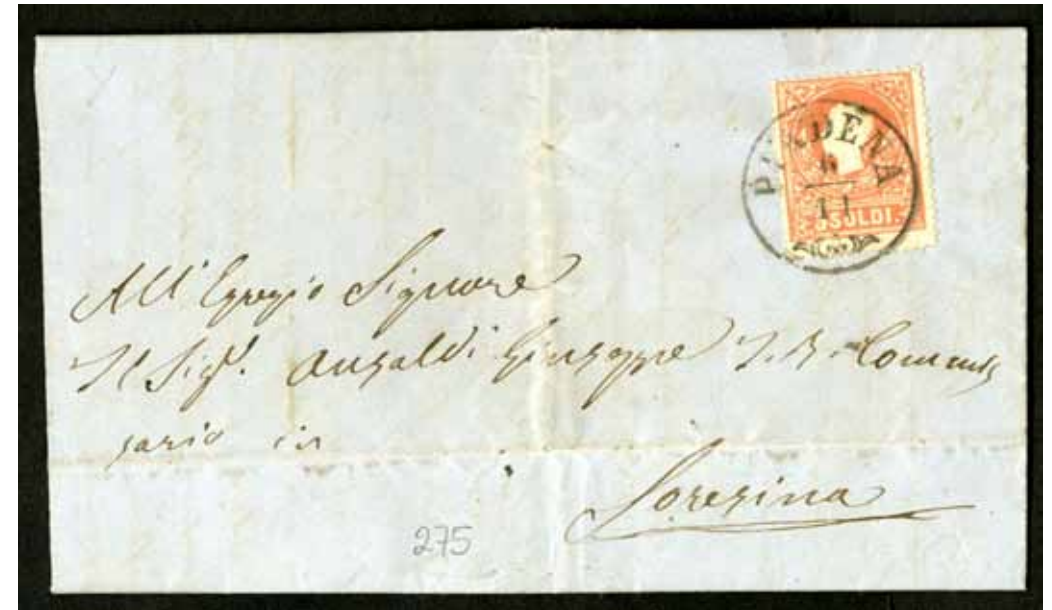 PIADENA
6
11
5 SOLDI.
All' Egregio Signore
Il Sigr. Ansaldi Giuseppe I. R. Commis
sario in
Soresina
275